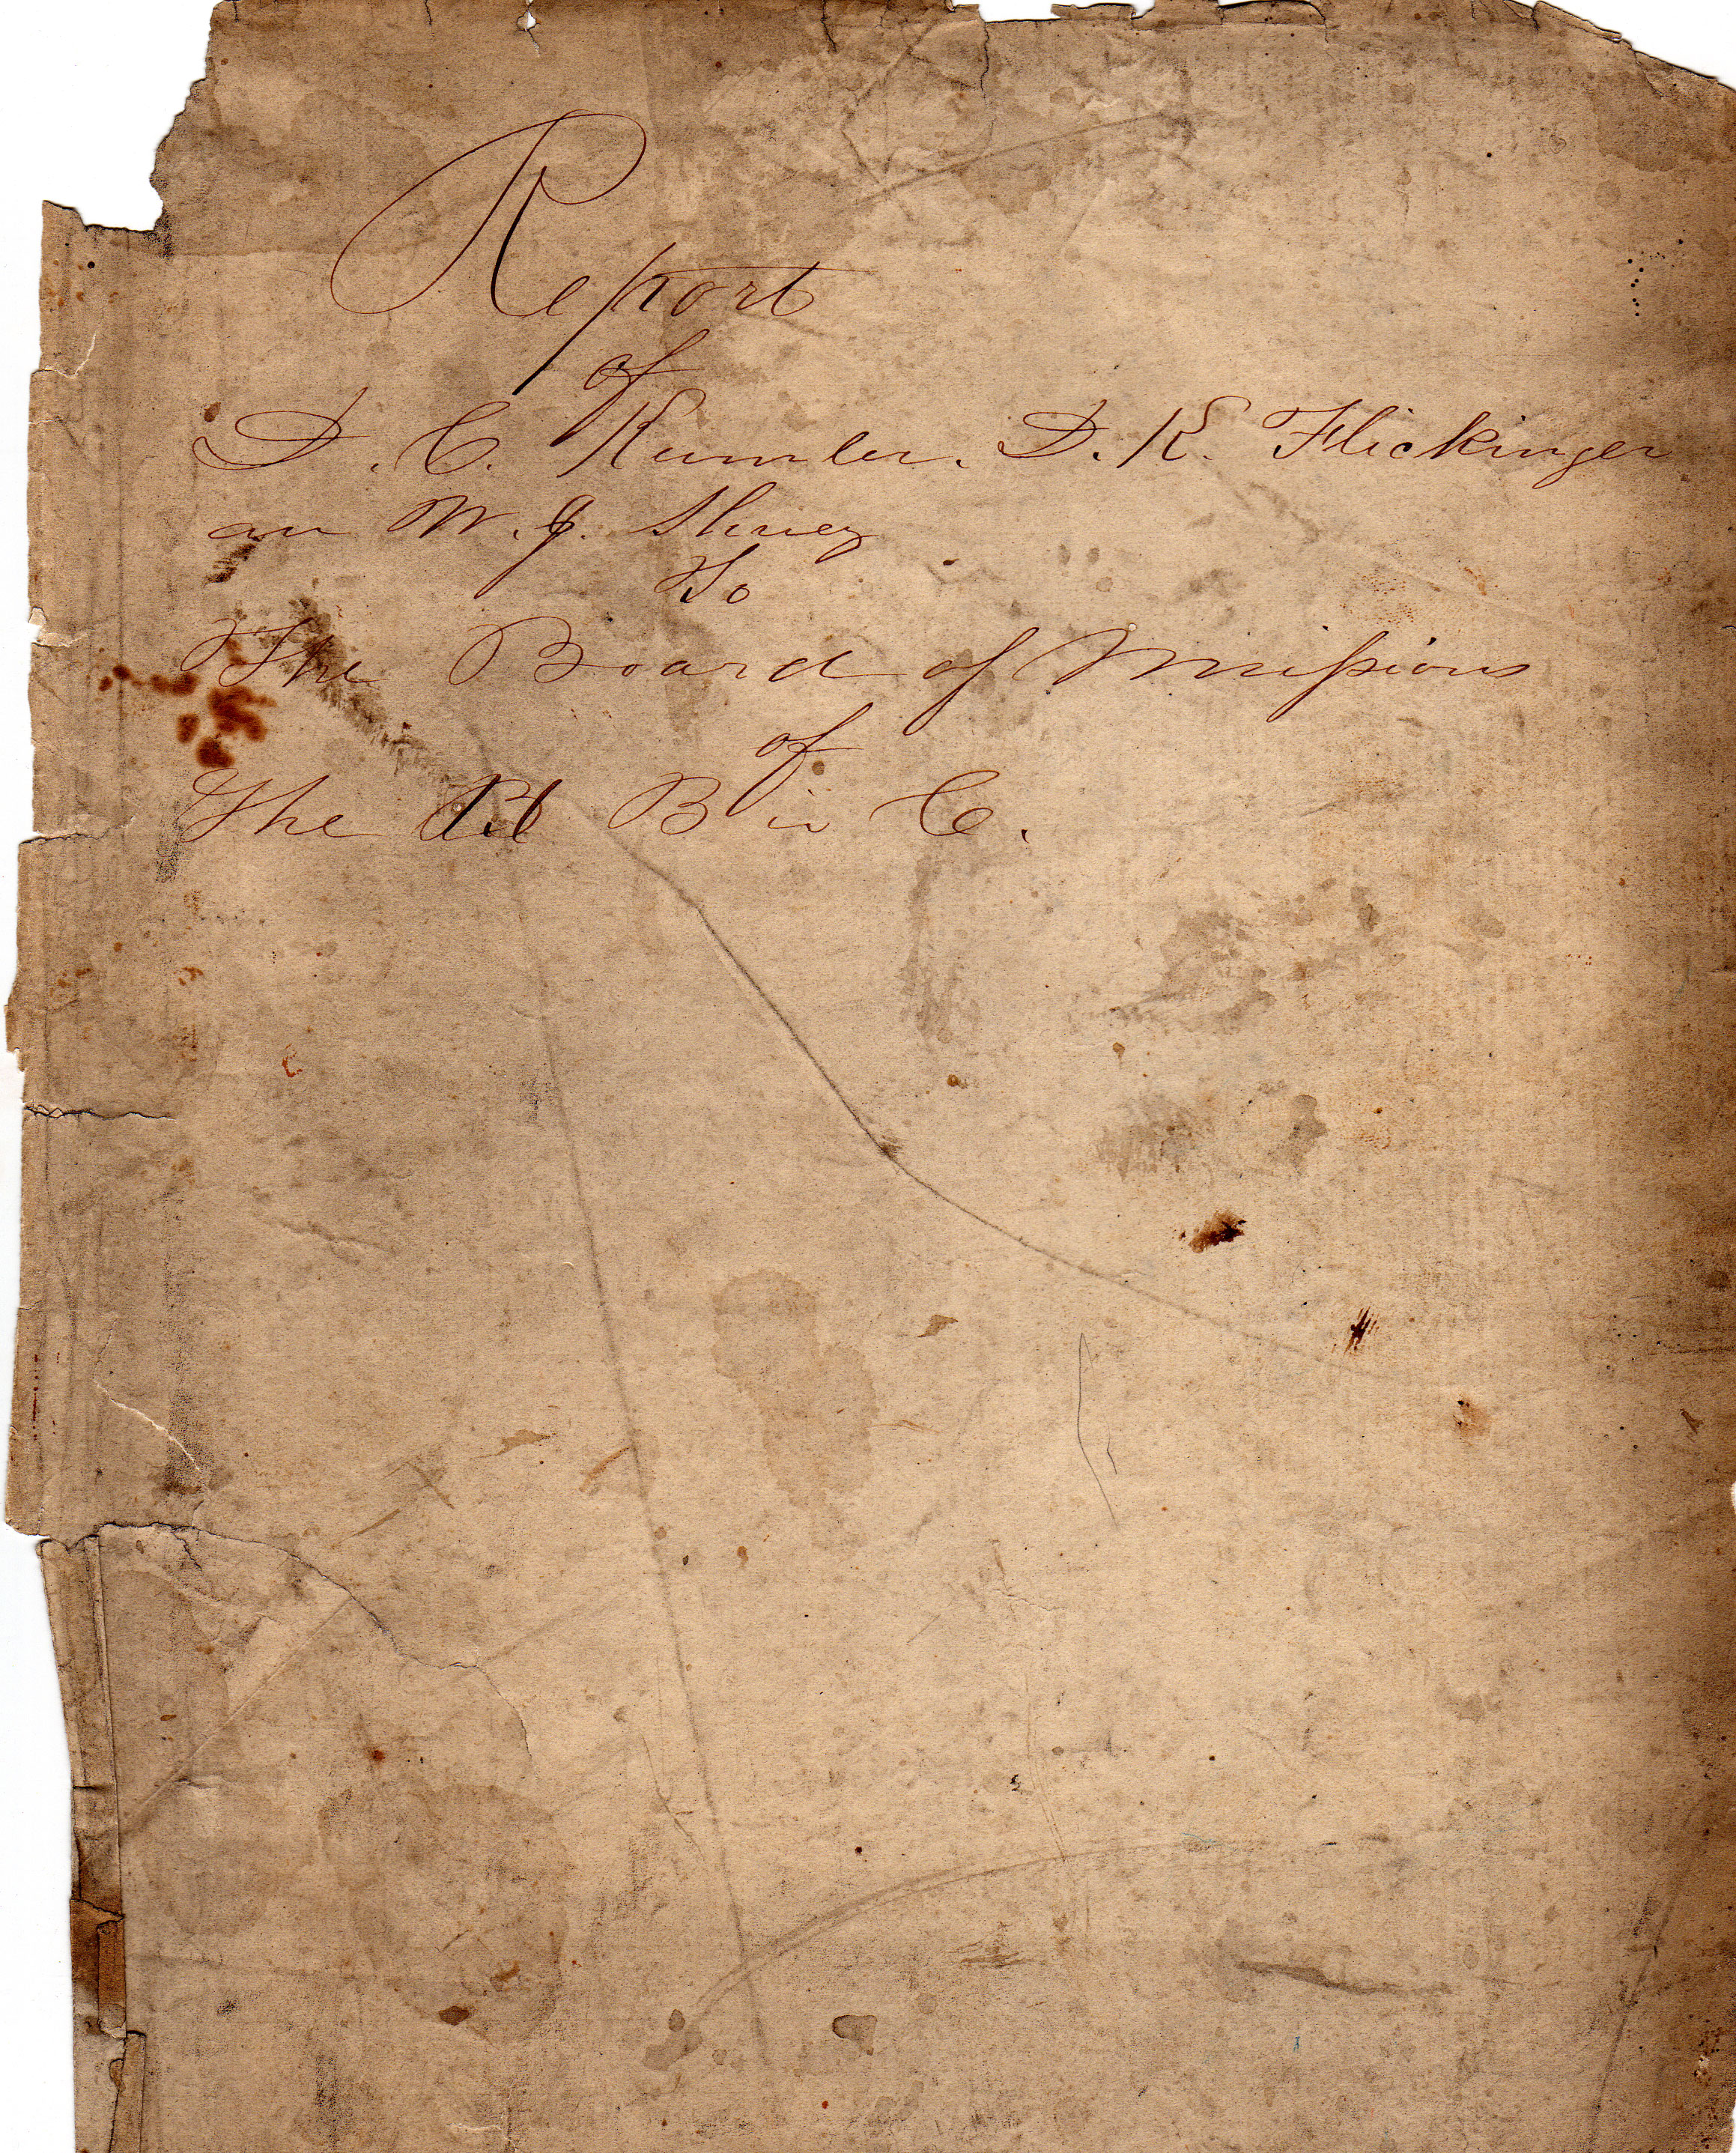 Report
of
D. C. Kumler. D. K. Flickinger
an W. J. Shuey
To
The Board of Missions
of
The B in C.